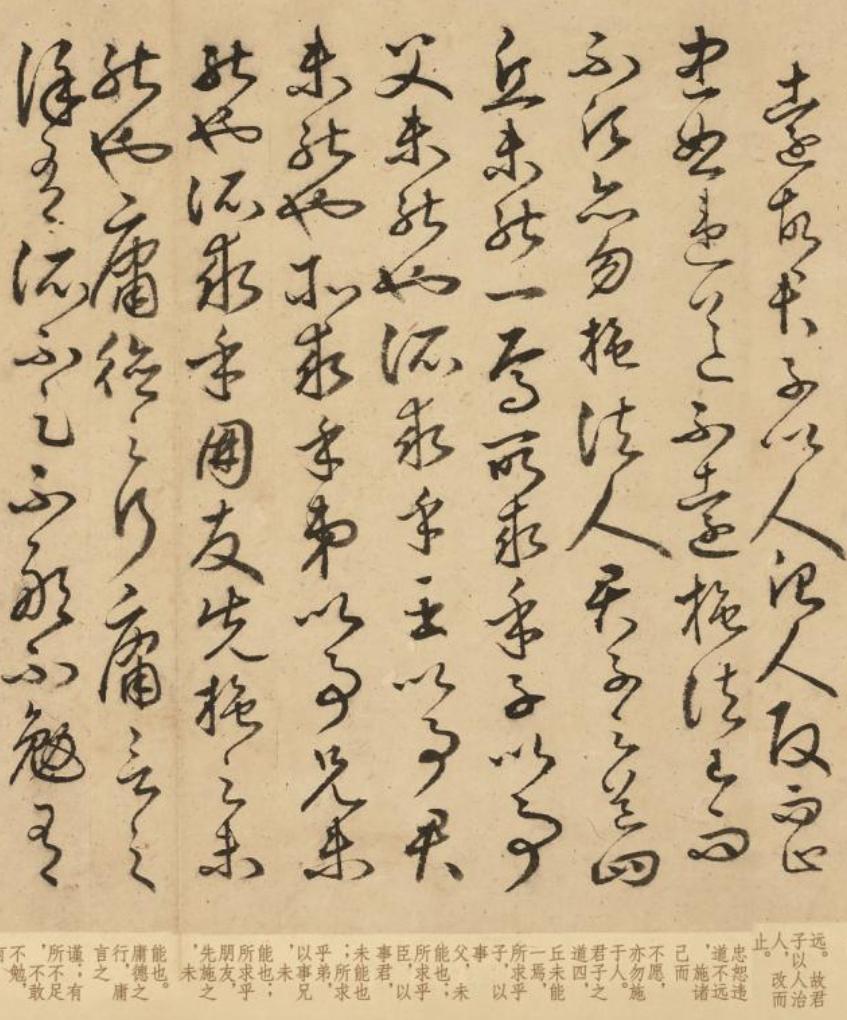 遠故君子以人治人改而止
忠恕違道不遠施諸己而
不願亦勿施諸人君子之道四
丘未能一焉所求乎子以事
父未能也所求乎臣以事君
未能也所求乎弟以事兄未
能也所求乎朋友先施之未
能也庸德之行庸言之
謹有所不足不敢不勉有
远。故君
子以人治
人，改而
止。
忠恕违
道不远
，施诸
己而
不愿，
亦勿施
于人。
君子之
道四，
丘未能
一焉，
所求乎
子，以
事
父，未
能也；
所求乎
臣，以
事君，
未能也
；所求
乎弟，
以事兄
，未
能也；
所求乎
朋友，
先施之
，未
能也。
庸德之
行，庸
言之
谨；有
所不足
，不敢
不勉，
有